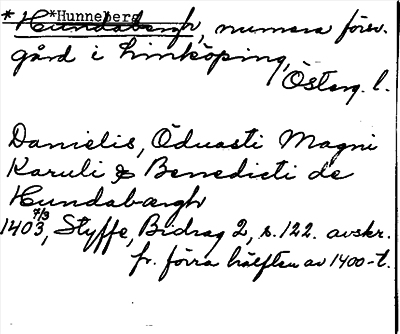 * *Hunneberg
Hundabergh, numera försv.
gård i Linköping,
Österg. l.
Danielis, Öduasti Magni
Karuli & Benedicti de
Hundabærgh
1403 7/3, Styffe, Bidrag 2, s. 122. avskr.
fr. förra hälften av 1400-t.